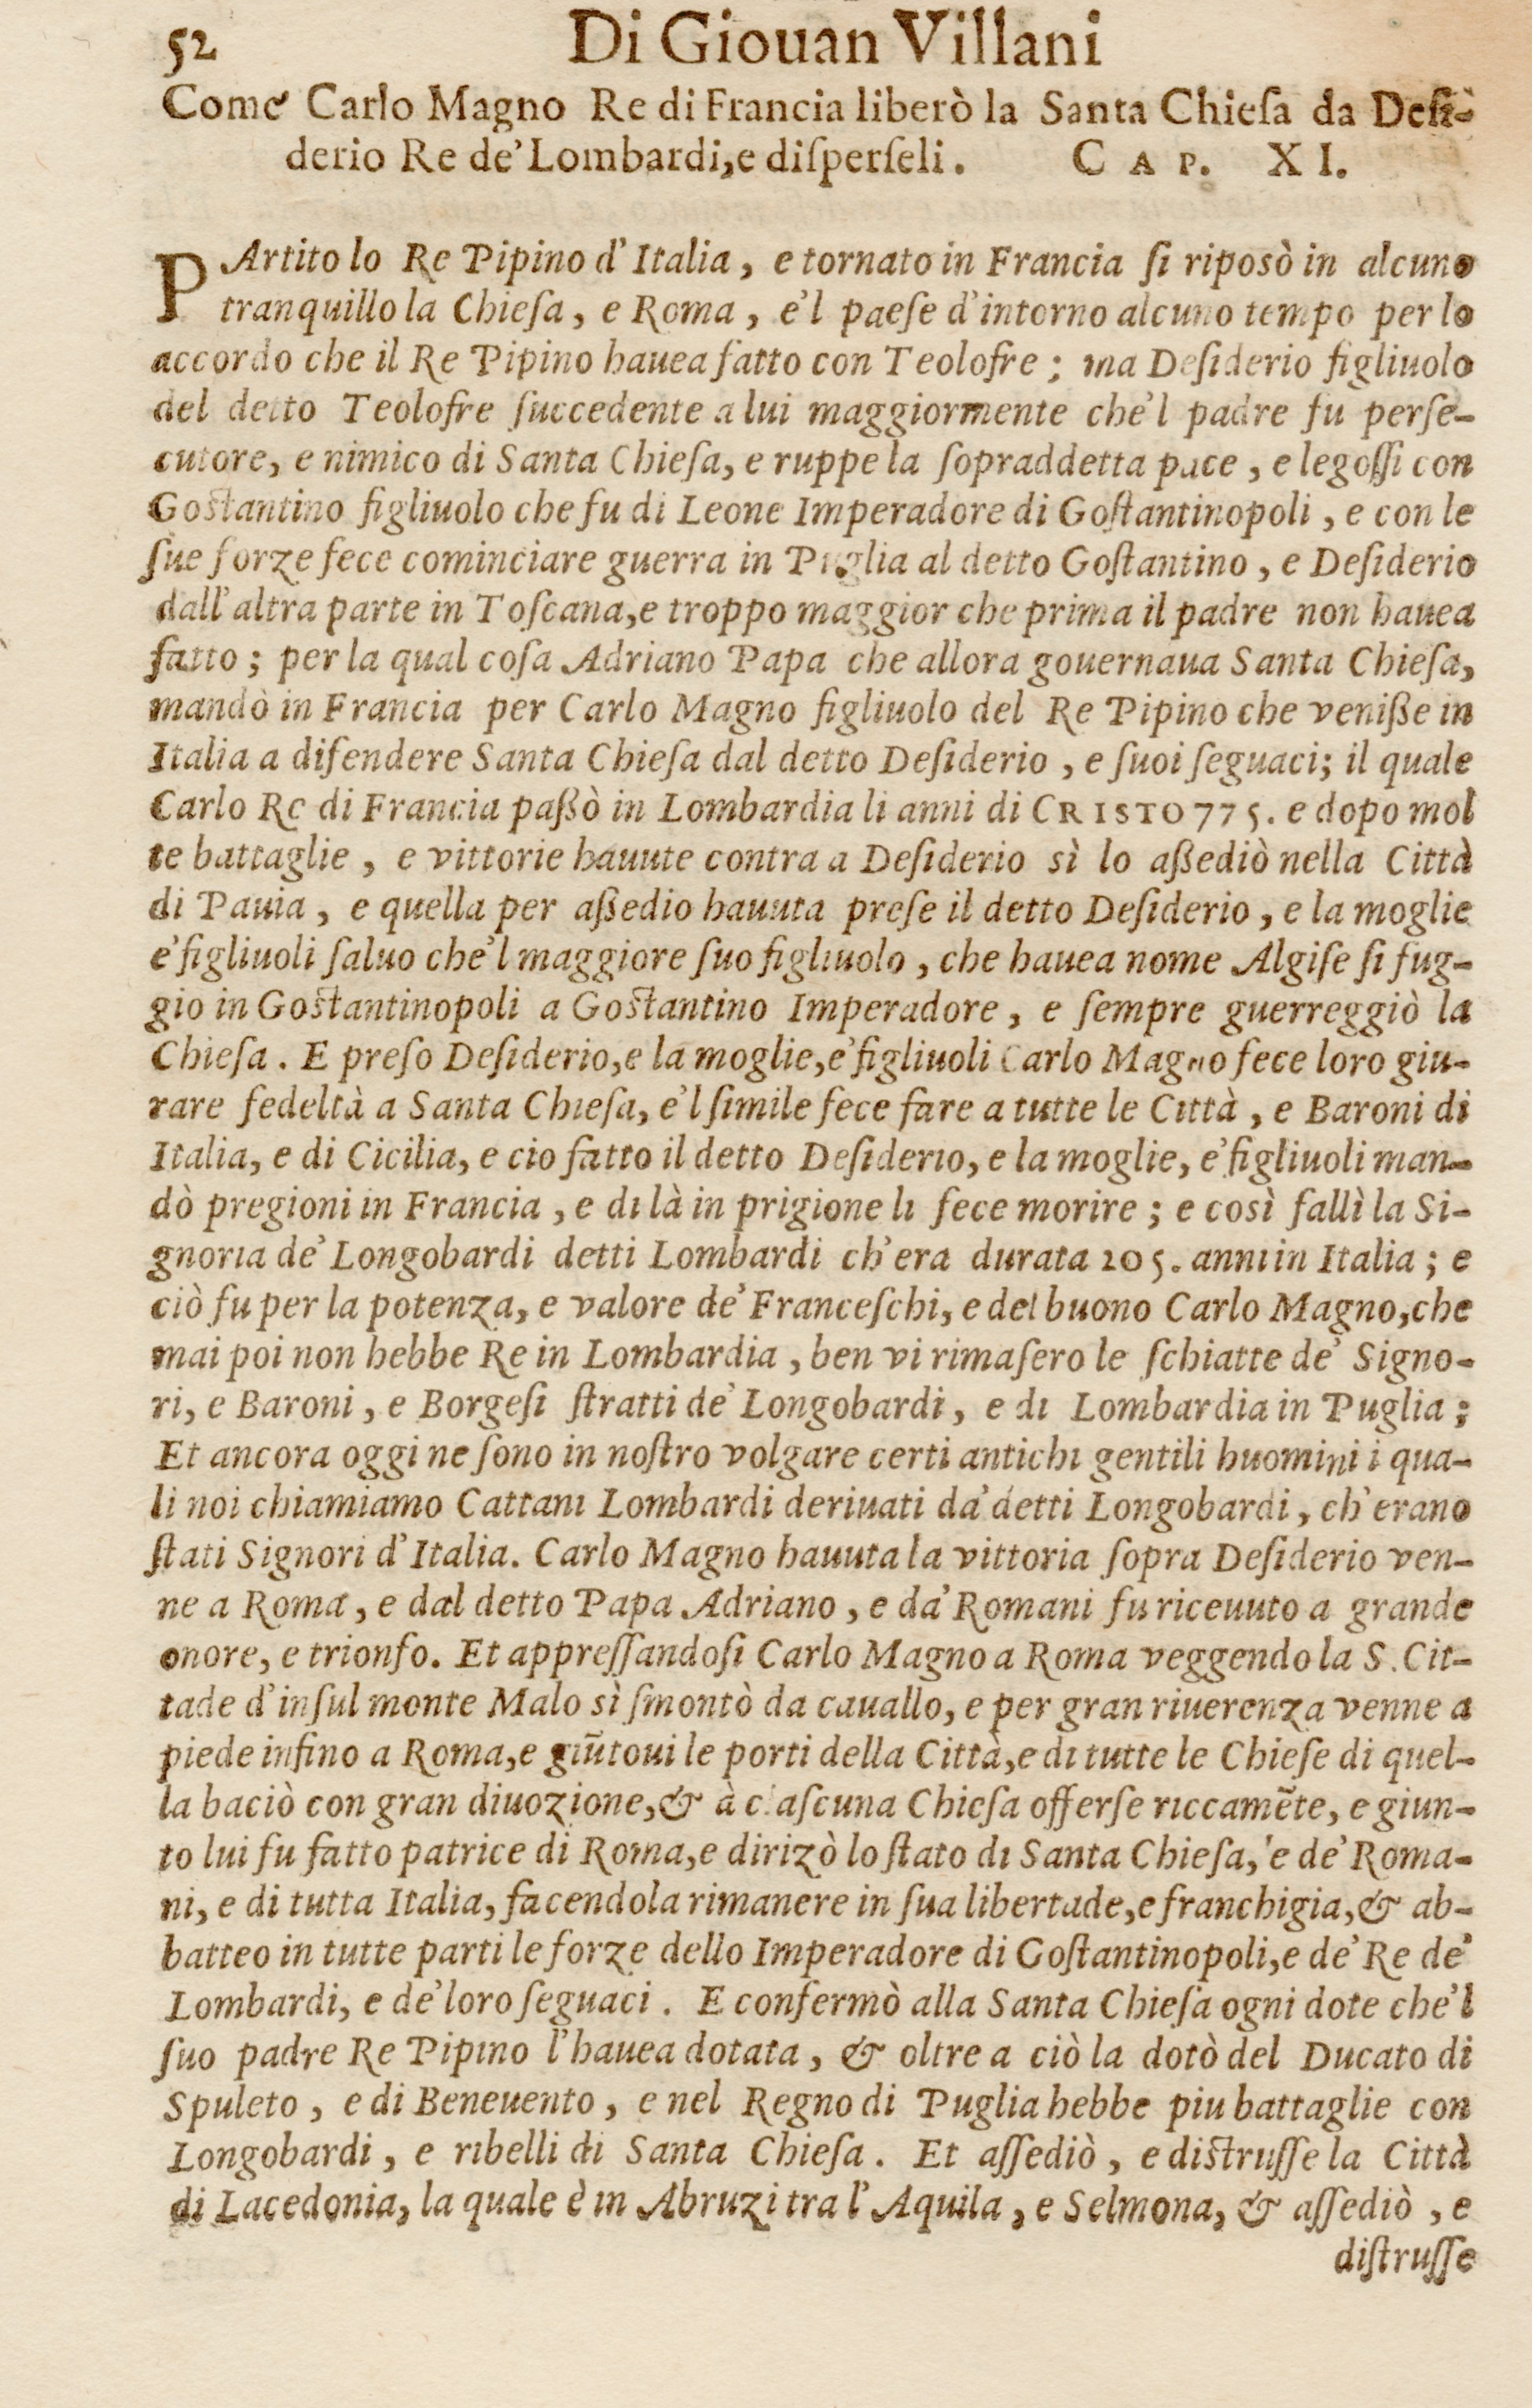 52 Di Giouan Villani
Come Carlo Magno Re di Francia liberò la Santa Chieſa da Deſi-
derio Re de' Lombardi, e diſperſeli. CAP. XI.
PArtito lo Re Pipino d'Italia, e tornato in Francia ſi riposò in alcuno
tranquillo la Chieſa, e Roma, e'l paeſe d'intorno alcuno tempo per lo
accordo che il Re Pipino hauea fatto con Teolofre; ma Deſiderio figliuolo
del detto Teolofre ſuccedente a lui maggiormente che'l padre fu perſe-
cutore, e nimico di Santa Chieſa, e ruppe la ſopraddetta pace, e legoſſi con
Goſtantino figliuolo che fu di Leone Imperadore di Goſtantinopoli, e con le
ſue forze fece cominciare guerra in Puglia al detto Goſtantino, e Deſiderio
dall'altra parte in Toſcana, e troppo maggior che prima il padre non hauea
fatto; per la qual coſa Adriano Papa che allora gouernaua Santa Chieſa,
mandò in Francia per Carlo Magno figliuolo del Re Pipino che veniße in
Italia a difendere Santa Chieſa dal detto Deſiderio, e ſuoi ſeguaci; il quale
Carlo Re di Francia paßò in Lombardia li anni di CRISTO 775. e dopo mol
te battaglie, e vittorie hauute contra a Deſiderio sì lo aßediò nella Città
di Pauia, e quella per aßedio hauuta preſe il detto Deſiderio, e la moglie
e' figliuoli ſaluo che'l maggiore ſuo figliuolo, che hauea nome Algiſe ſi fug-
gio in Goſtantinopoli a Goſtantino Imperadore, e ſempre guerreggiò la
Chieſa. E preſo Deſiderio, e la moglie, e' figliuoli Carlo Magno fece loro giu-
rare fedeltà a Santa Chieſa, e'l ſimile fece fare a tutte le Città, e Baroni di
Italia, e di Cicilia, e cio fatto il detto Deſiderio, e la moglie, e' figliuoli man-
dò pregioni in Francia, e di là in prigione li fece morire; e così fallì la Si-
gnoria de' Longobardi detti Lombardi ch'era durata 205. anni in Italia; e
ciò fu per la potenza, e valore de' Franceſchi, e del buono Carlo Magno, che
mai poi non hebbe Re in Lombardia, ben vi rimaſero le ſchiatte de' Signo-
ri, e Baroni, e Borgeſi ſtratti de' Longobardi, e di Lombardia in Puglia;
Et ancora oggi ne ſono in noſtro volgare certi antichi gentili huomini i qua-
li noi chiamiamo Cattani Lombardi deriuati da' detti Longobardi, ch'erano
ſtati Signori d'Italia. Carlo Magno hauuta la vittoria ſopra Deſiderio ven-
ne a Roma, e dal detto Papa Adriano, e da' Romani fu riceuuto a grande
onore, e trionfo. Et appreſſandoſi Carlo Magno a Roma veggendo la S. Cit-
tade d'inſul monte Malo sì ſmontò da cauallo, e per gran riuerenza venne a
piede infino a Roma, e giũtoui le porti della Città, e di tutte le Chieſe di quel-
la baciò con gran diuozione, & à ciaſcuna Chieſa offerſe riccamẽte, e giun-
to lui fu fatto patrice di Roma, e dirizò lo ſtato di Santa Chieſa, e de' Roma-
ni, e di tutta Italia, facendola rimanere in ſua libertade, e franchigia, & ab-
batteo in tutte parti le forze dello Imperadore di Goſtantinopoli, e de' Re de'
Lombardi, e de' loro ſeguaci. E confermò alla Santa Chieſa ogni dote che'l
ſuo padre Re Pipino l'hauea dotata, & oltre a ciò la dotò del Ducato di
Spuleto, e di Beneuento, e nel Regno di Puglia hebbe piu battaglie con
Longobardi, e ribelli di Santa Chieſa. Et aſſediò, e diſtruſſe la Città
di Lacedonia, la quale è in Abruzi tra l'Aquila, e Selmona, & aſſediò, e
diſtruſſe